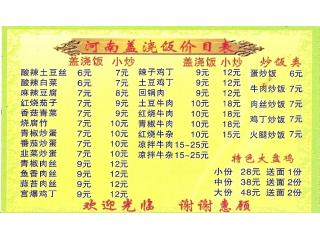 河南盖浇饭价目表
盖浇饭 小炒 盖浇饭 小炒 炒饭类
酸辣土豆丝 6元 7元 辣子鸡丁 9元 12元 蛋炒饭 6元
酸辣白菜 6元 7元 土豆鸡丁 9元 12元
麻辣豆腐 7元 回锅肉 9元 12元 牛肉炒饭 7元
红烧茄子 6元 7元 土豆牛肉 10元 15元
香菇青菜 7元 红烧牛肉 10元 15元 肉丝炒饭 7元
烧腐竹 7元 青椒牛肉 10元 15元
青椒炒蛋 7元 红烧牛杂 10元 15元 鸡丁炒饭 7元
番茄炒蛋 7元 青椒牛杂 10元 15元 火腿炒饭 7元
韭菜炒蛋 7元 凉拌牛肉15~25元
青椒肉丝 凉拌牛杂15~25元 特色大盘鸡
鱼香肉丝 小份 28元 送面1份
蒜苔肉丝 中份 38元 送面2份
宫爆鸡丁 9元 12元 大份 48元 送面2份
欢迎光临 谢谢惠顾